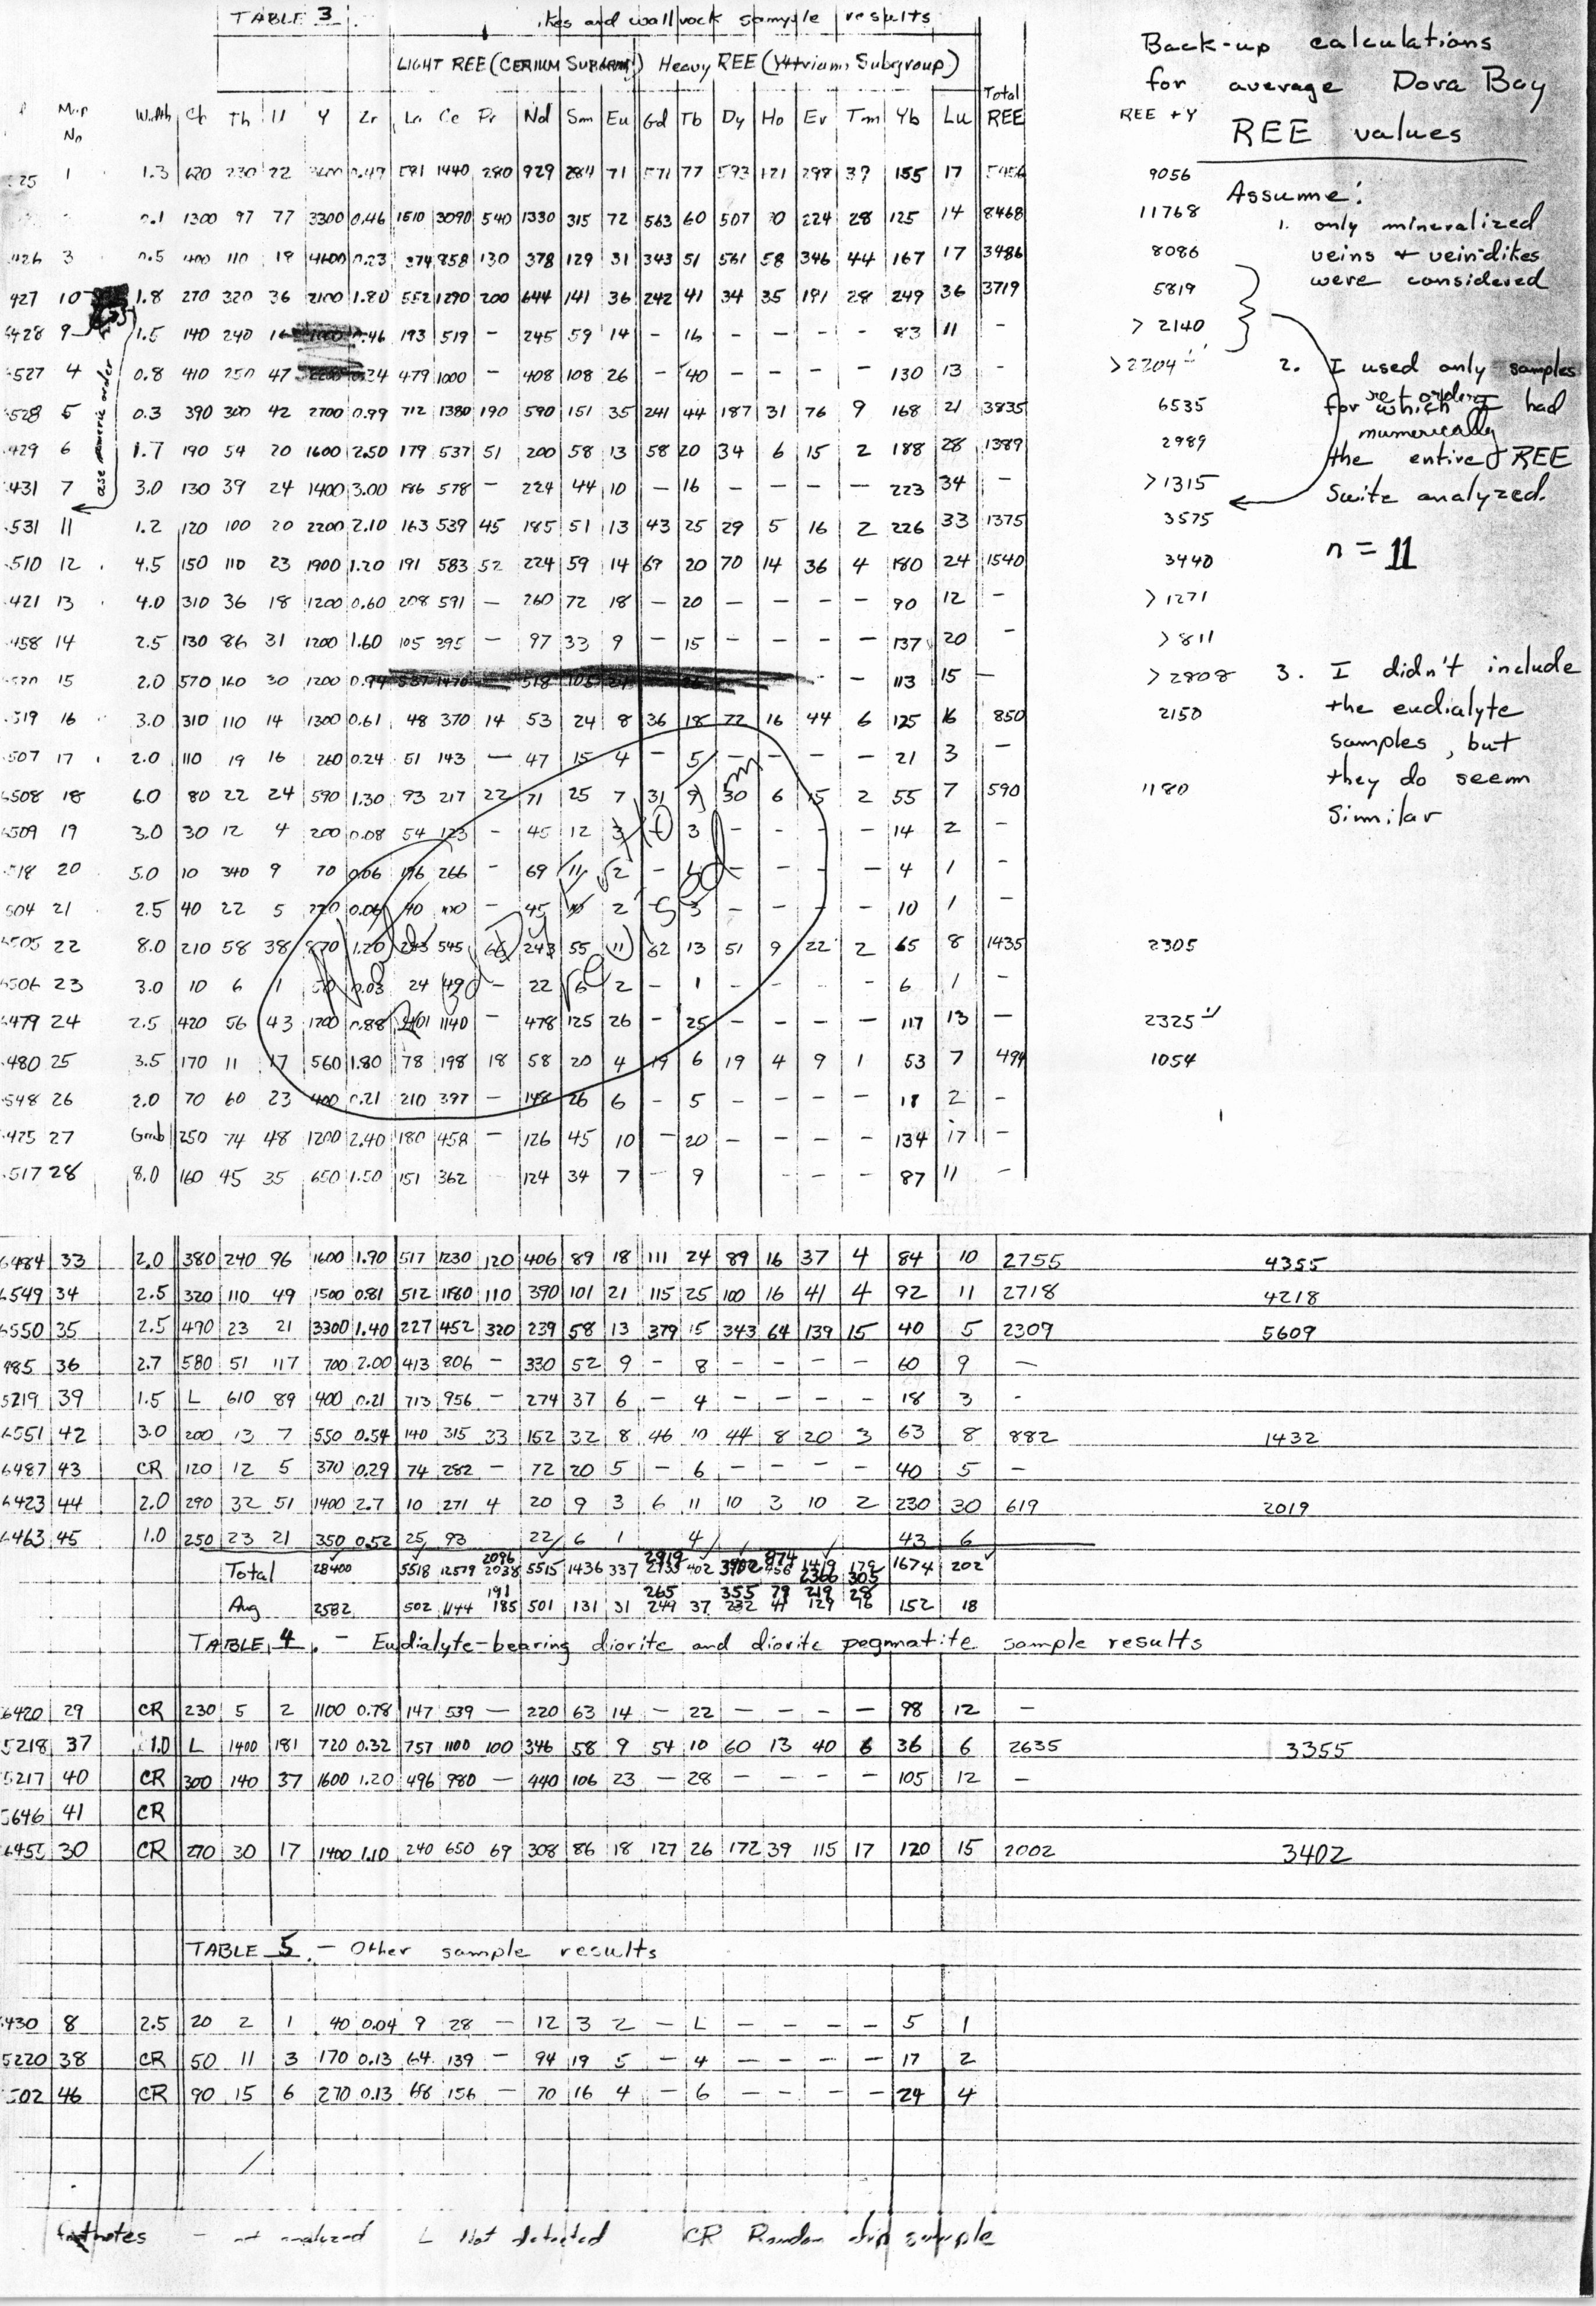 TABLE 3. ikes and wallrock sample results
LIGHT REE (CERIUM Subgroup) Heavy REE (Yttrium Subgroup)
Map No Width Cb Th U Y Zr La Ce Pr Nd Sm Eu Gd Tb Dy Ho Er Tm Yb Lu Total REE REE + Y
Back-up calculations
for average Dora Bay
REE values
Assume:
1. only mineralized
veins + vein-dikes
were considered
2. I used only samples
for which I had
the entire REE
suite analyzed.
not order numerically
n = 11
3. I didn't include
the eudialyte
samples, but
they do seem
similar
use numeric order
25 1 1.3 620 230 22 0.47 581 1440 280 929 284 71 571 77 593 121 298 39 155 17 9056
0.1 1300 97 77 3300 0.46 1510 3090 540 1330 315 72 563 60 507 224 28 125 14 8468 11768
426 3 0.5 400 110 19 4600 0.23 374 858 130 378 129 31 343 51 561 58 346 44 167 17 3486 8086
427 10 1.8 270 320 36 2100 1.80 552 1290 200 644 141 36 242 41 34 35 191 28 249 36 3719 5819
428 9 1.5 140 240 .46 193 519 – 245 59 14 – 16 – – – – 83 11 – > 2140
527 4 0.8 410 250 47 479 1000 – 408 108 26 – 40 130 13 – > 2204
528 5 0.3 390 300 42 2700 0.99 712 1380 190 590 151 35 241 44 187 31 76 9 168 21 3835 6535
429 6 1.7 190 54 20 1600 2.50 179 537 51 200 58 13 58 20 34 6 15 2 188 28 1389 2989
431 7 3.0 130 39 24 1400 3.00 186 578 – 224 44 10 – 16 – – – – 223 34 – > 1315
531 11 1.2 120 100 20 2200 2.10 163 539 45 185 51 13 43 25 29 5 16 2 226 33 1375 3575
510 12 4.5 150 110 23 1900 1.20 191 583 52 224 59 14 67 20 70 14 36 4 180 24 1540 3440
421 13 4.0 310 36 18 1200 0.60 208 591 – 260 72 18 – 20 – – – – 90 12 – > 1271
458 14 2.5 130 86 31 1200 1.60 105 395 – 97 33 9 – 15 – – – – 137 20 – > 811
520 15 2.0 570 160 30 1200 0.94 518 105 – – 113 15 – > 2808
519 16 3.0 310 110 14 1300 0.61 48 370 14 53 24 8 36 18 72 16 44 6 125 16 850 2150
507 17 2.0 110 19 16 260 0.24 51 143 – 47 15 4 – 5 – – – – 21 3 –
6508 18 6.0 80 22 24 590 1.30 93 217 22 71 25 7 31 9 30 6 15 2 55 7 590 1180
6509 19 3.0 30 12 4 200 0.08 54 123 – 45 12 3 3 – – – – 14 2 –
518 20 5.0 10 340 9 70 0.06 196 266 – 69 11 2 – – – – – 4 1 –
504 21 2.5 40 22 5 0.06 40 100 – 45 2 3 – – – – 10 1 –
6505 22 8.0 210 58 38 870 1.20 243 545 66 243 55 11 62 13 51 9 22 2 65 8 1435 2305
6506 23 3.0 10 6 1 50 0.03 24 49 – 22 6 2 – 1 – – – – 6 1 –
6479 24 2.5 420 56 43 1200 0.88 401 1140 – 478 125 26 – 25 – – – – 117 13 – 2325
480 25 3.5 170 11 17 560 1.80 78 198 18 58 20 4 19 6 19 4 9 1 53 7 494 1054
548 26 2.0 70 60 23 400 0.21 210 397 – 148 26 6 – 5 – – – – 18 2 –
475 27 Grab 250 74 48 1200 2.40 180 458 – 126 45 10 – 20 – – – – 134 17 –
517 28 8.0 160 45 35 650 1.50 151 362 124 34 7 – 9 – – – 87 11 –
6484 33 2.0 380 240 96 1600 1.90 517 1230 120 406 89 18 111 24 89 16 37 4 84 10 2755 4355
6549 34 2.5 320 110 49 1500 0.81 512 1180 110 390 101 21 115 25 100 16 41 4 92 11 2718 4218
6550 35 2.5 490 23 21 3300 1.40 227 452 320 239 58 13 379 15 343 64 139 15 40 5 2309 5609
485 36 2.7 580 51 117 700 2.00 413 806 – 330 52 9 – 8 – – – – 60 9 –
5219 39 1.5 L 610 89 400 0.21 713 956 – 274 37 6 – 4 – – – – 18 3 –
6551 42 3.0 200 13 7 550 0.54 140 315 33 152 32 8 46 10 44 8 20 3 63 8 882 1432
6487 43 CR 120 12 5 370 0.29 74 282 – 72 20 5 – 6 – – – – 40 5 –
6423 44 2.0 290 32 51 1400 2.7 10 271 4 20 9 3 6 11 10 3 10 2 230 30 619 2019
6463 45 1.0 250 23 21 350 0.52 25 93 22 6 1 4 43 6
2096 2919 874
Total 28400 5518 12579 2038 5515 1436 337 2735 402 3902 456 1419 179 1674 202
2366 305
191 265 355 79 219 28
Avg 2582 502 1144 185 501 131 31 249 37 232 41 129 16 152 18
TABLE 4. – Eudialyte-bearing diorite and diorite pegmatite sample results
6420 29 CR 230 5 2 1100 0.78 147 539 – 220 63 14 – 22 – – – – 98 12 –
5218 37 1.0 L 1400 181 720 0.32 757 1100 100 346 58 9 54 10 60 13 40 6 36 6 2635 3355
5217 40 CR 300 140 37 1600 1.20 496 980 – 440 106 23 – 28 – – – – 105 12 –
5646 41 CR
6455 30 CR 270 30 17 1400 1.10 240 650 69 308 86 18 127 26 172 39 115 17 120 15 2002 3402
TABLE 5. – Other sample results
430 8 2.5 20 2 1 40 0.04 9 28 – 12 3 2 – L – – – – 5 1
5220 38 CR 50 11 3 170 0.13 64 139 – 94 19 5 – 4 – – – – 17 2
502 46 CR 90 15 6 270 0.13 68 156 – 70 16 4 – 6 – – – – 24 4
footnotes – not analyzed L Not detected CR Random chip sample